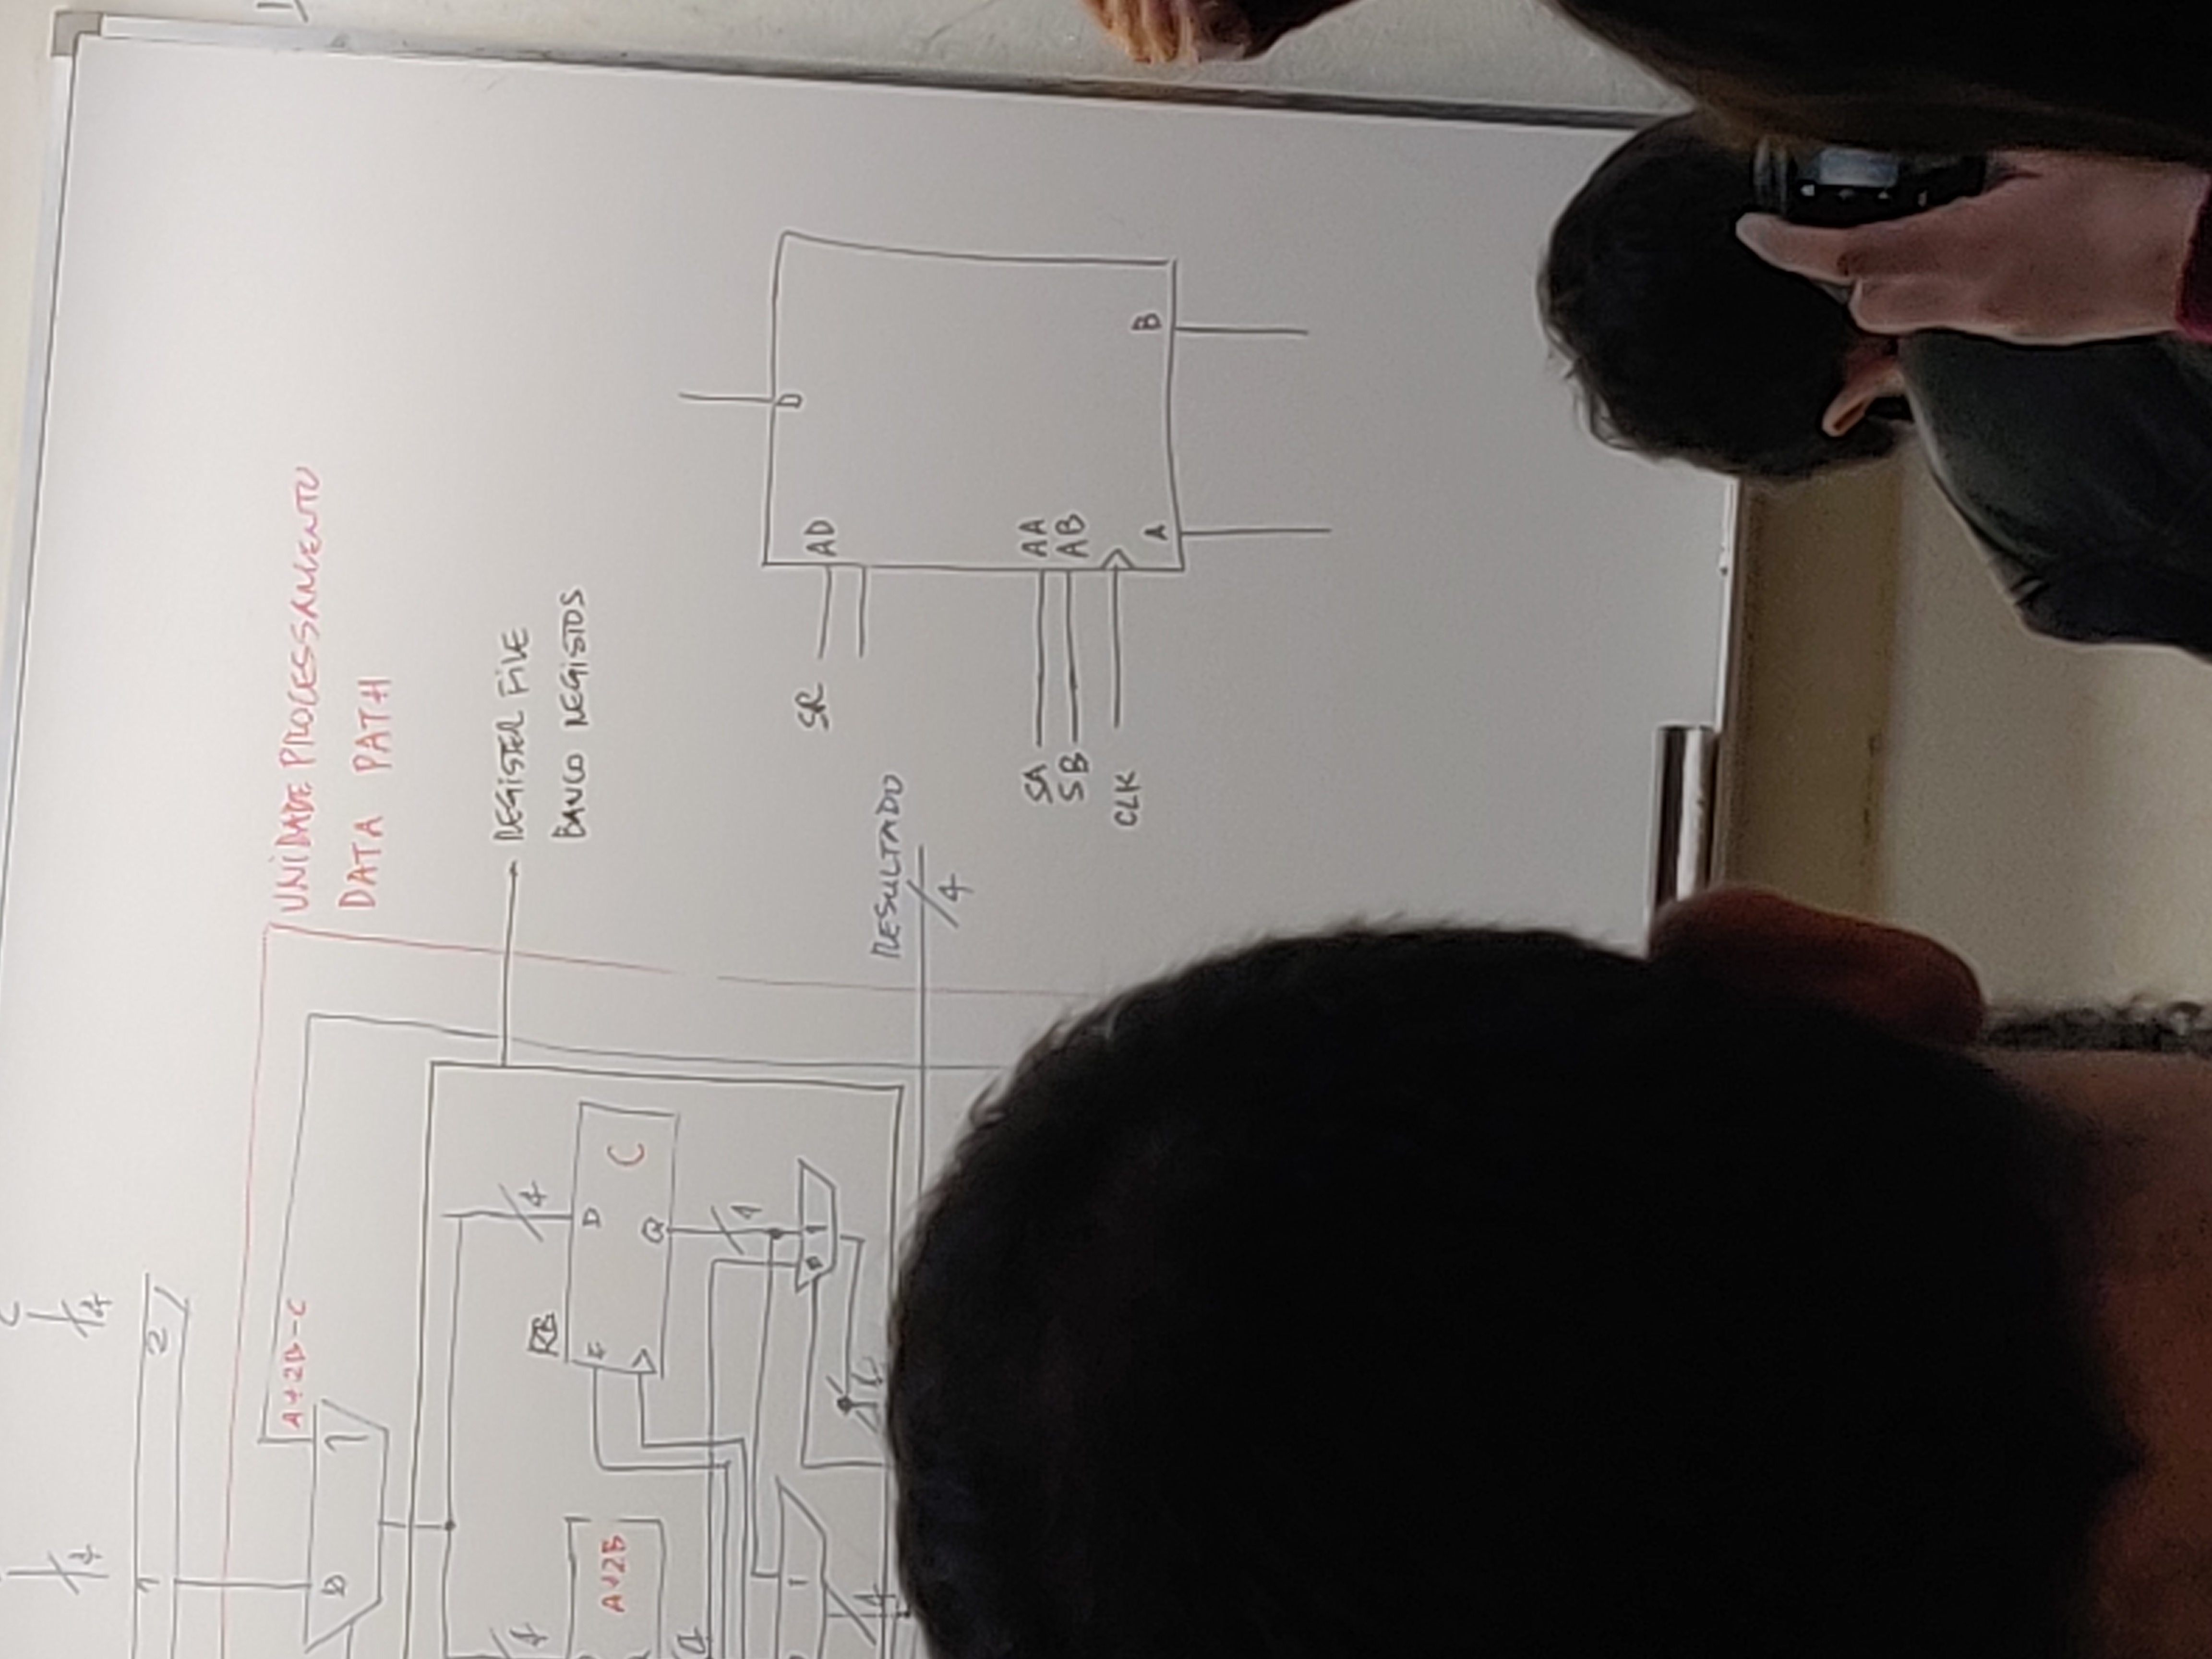 C
4
4
1
2
A+2B-C
UNIDADE PROCESSAMENTO
DATA PATH
0
1
REGISTER FILE
BANCO REGISTOS
4
4
RB
A+2B
E
D
C
Q
4
4
1
0
1
4
RESULTADO
4
SR
AD
D
SA
AA
SB
AB
CLK
A
B